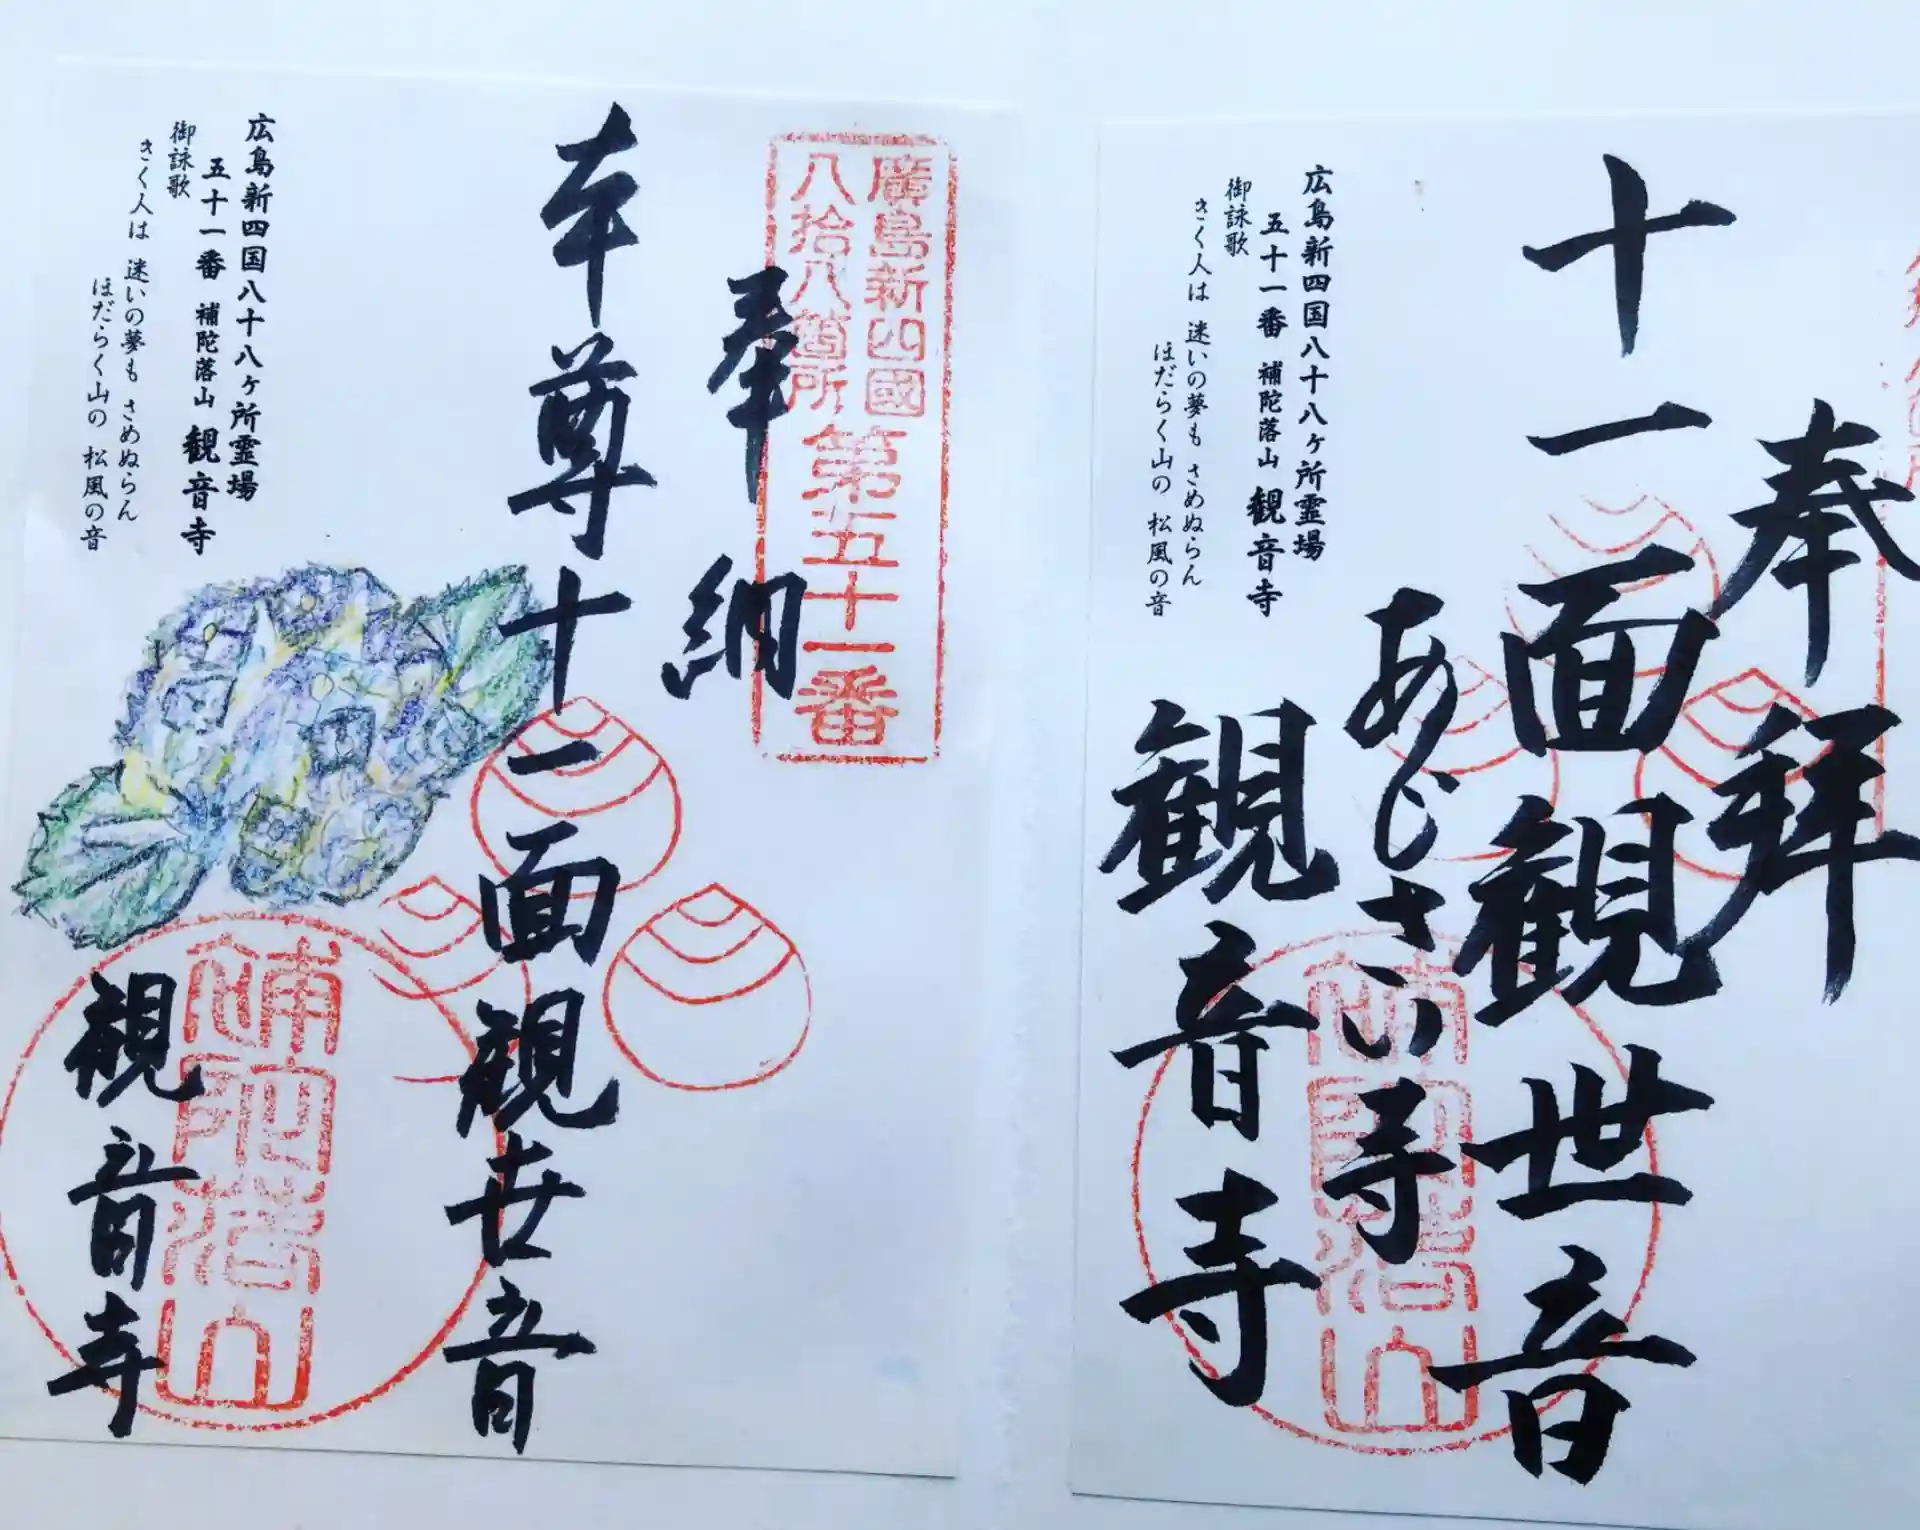 廣島新四國
八拾八箇所
第五十一番
奉納
本尊十一面観世音
観音寺
補陀落山
広島新四国八十八ヶ所霊場
五十一番 補陀落山 観音寺
御詠歌
きく人は 迷いの夢も さめぬらん
ほだらく山の 松風の音
奉拝
十一面観世音
あじさい寺
観音寺
補陀落山
広島新四国八十八ヶ所霊場
五十一番 補陀落山 観音寺
御詠歌
きく人は 迷いの夢も さめぬらん
ほだらく山の 松風の音